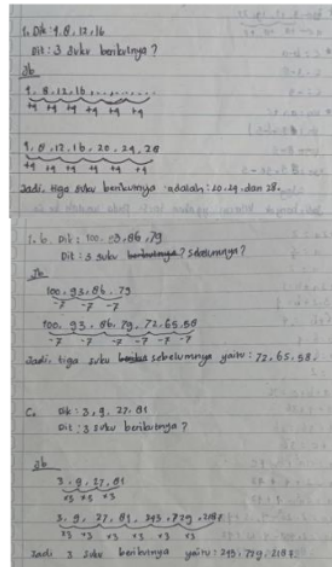 1. Dik : 4, 8, 12, 16
Dit : 3 suku berikutnya ?
Jb
4, 8, 12, 16, ..............
+4 +4 +4 +4 +4 +4
4, 8, 12, 16, 20, 24, 28
+4 +4 +4 +4 +4 +4
Jadi, tiga suku berikutnya adalah : 20, 24, dan 28.
1. b. Dik : 100, 93, 86, 79
Dit : 3 suku berikutnya? sebelumnya?
Jb
100, 93, 86, 79
-7 -7 -7
100, 93, 86, 79, 72, 65, 58
-7 -7 -7 -7 -7 -7
Jadi, tiga suku sebelumnya yaitu : 72, 65, 58.
C. Dik : 3, 9, 27, 81
Dit : 3 suku berikutnya ?
Jb
3, 9, 27, 81
x3 x3 x3
3, 9, 27, 81, 243, 729, 2187
x3 x3 x3 x3 x3 x3
Jadi 3 suku berikutnya yaitu : 243, 729, 2187.